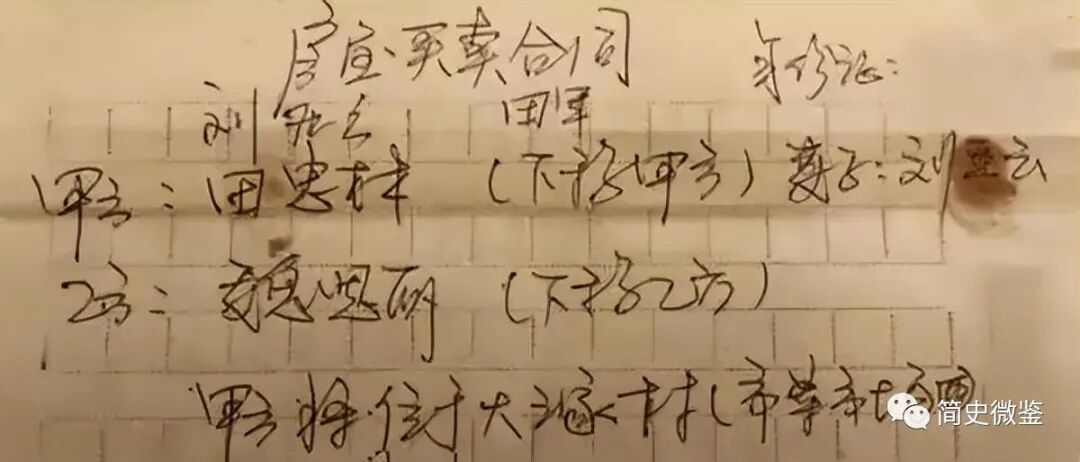 房屋买卖合同 身份证:
刘 田军
甲方:田忠林 (下称甲方) 妻子:刘亚云
乙方: 思丽 (下称乙方)
甲方将位于大 村(布草市场
简史微鉴